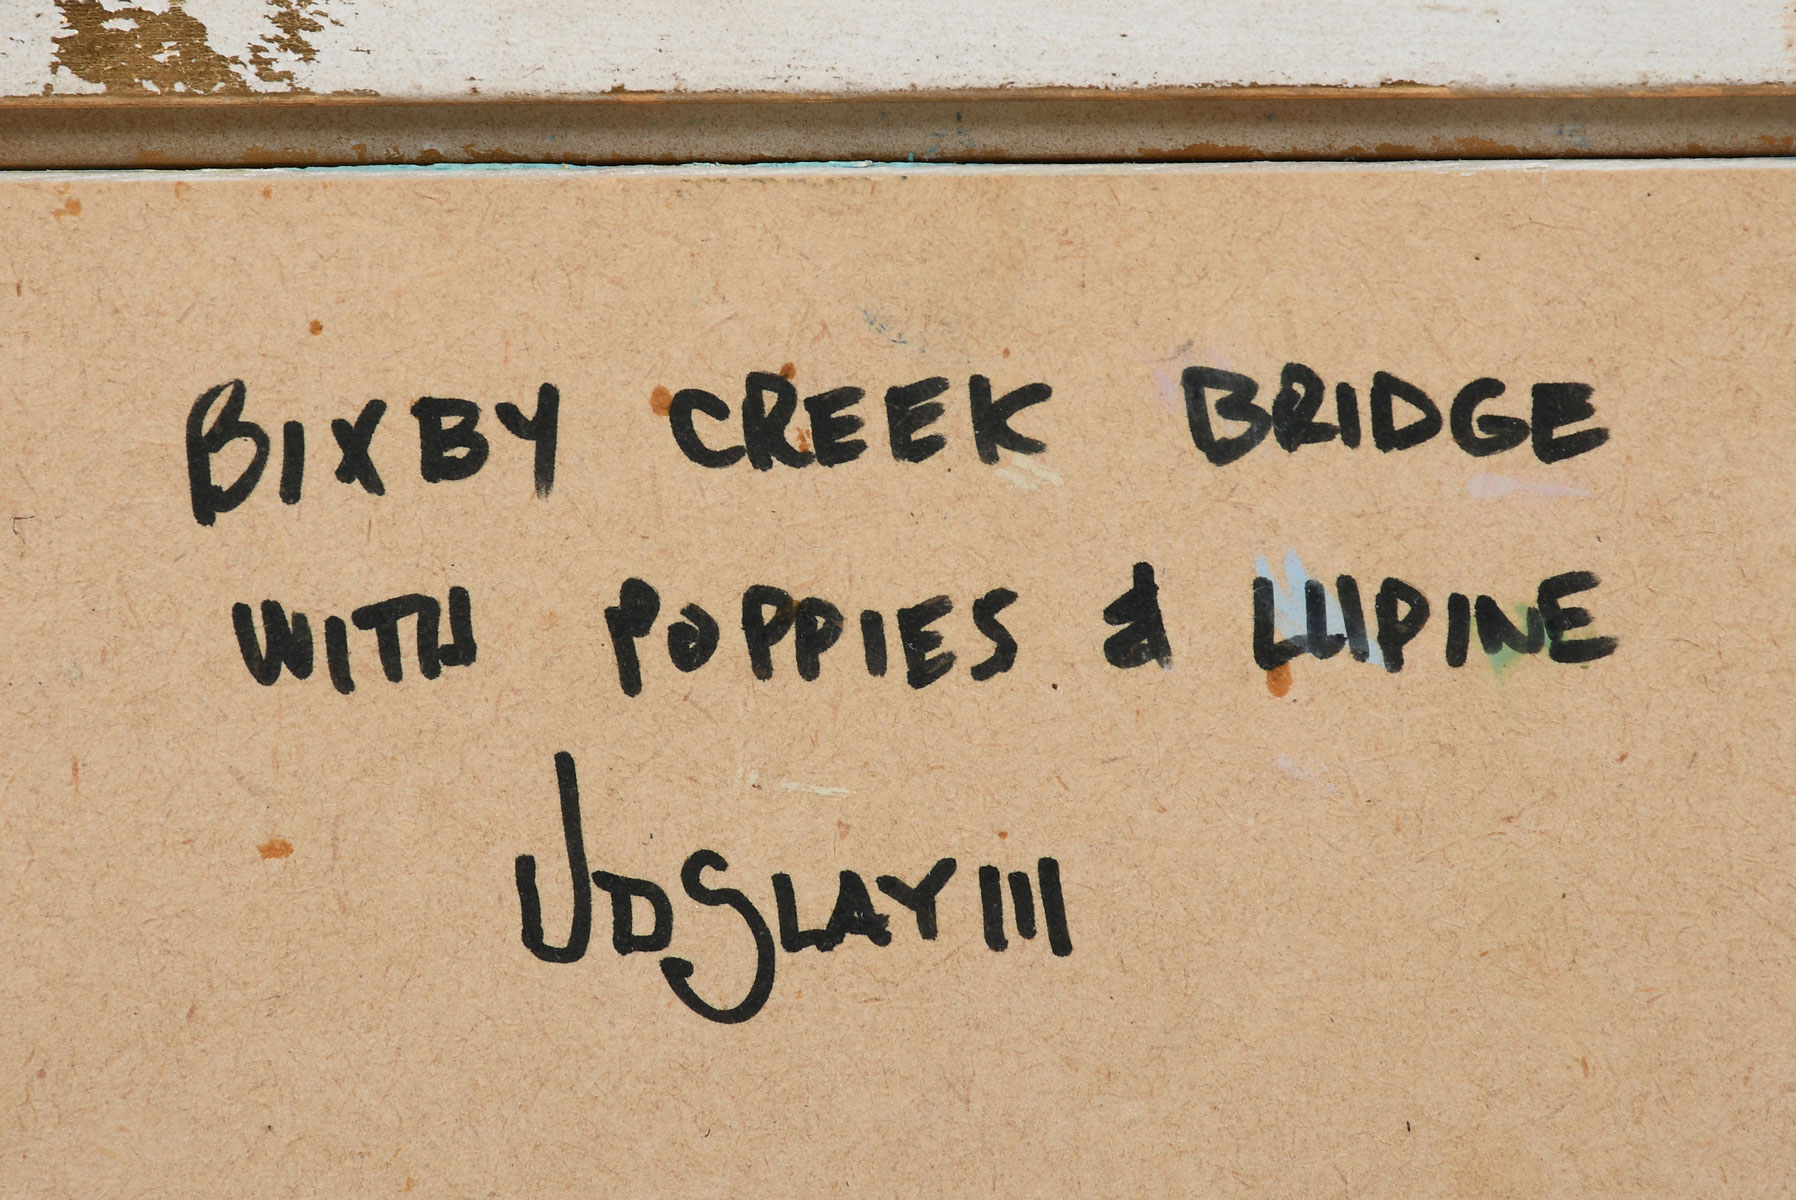 BIXBY CREEK BRIDGE
WITH POPPIES & LUPINE
JDSLAY III